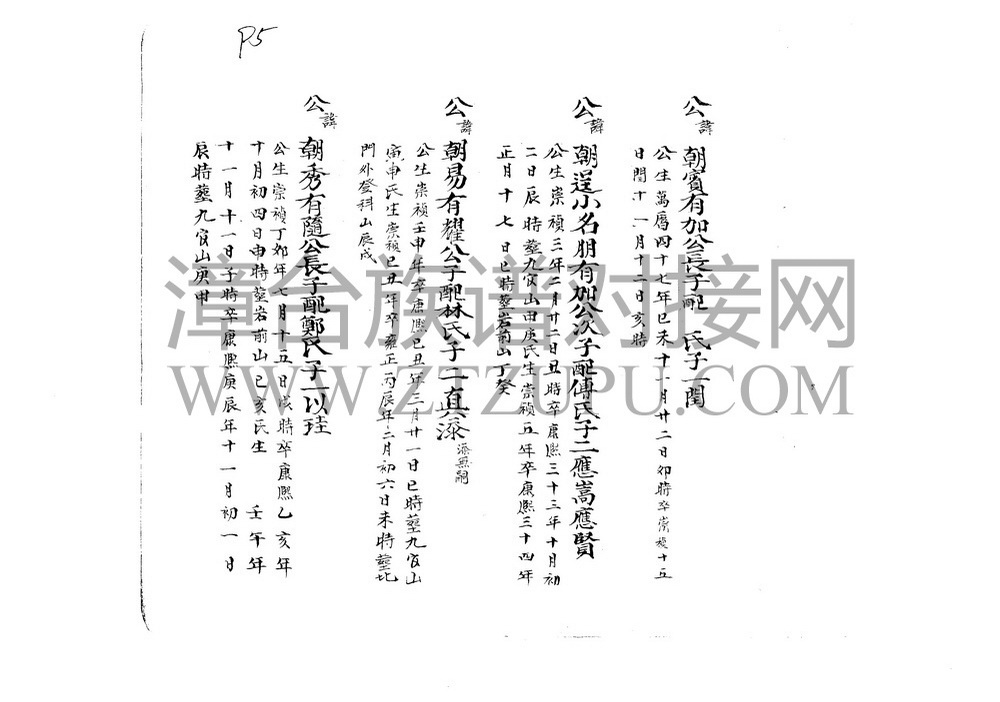 P5
公諱朝賓有加公長子配 氏子一閏
公生萬曆四十七年己未十一月廿二日卯時卒崇禎十五
日閏十一月十二日亥時
公諱朝逞小名朋有加公次子配傅氏子二應嵩應賢
公生崇禎三年二月廿二日丑時卒康熙三十三年十月初
二日辰時塟九官山甲庚氏生崇禎五年卒康熙三十四年
正月十七日巳時塟岩前山丁癸
公諱朝易有耀公子配林氏子二真添添無嗣
公生崇禎壬申年卒康熙己丑年三月廿一日巳時塟九官山
寅申氏生崇禎己丑年卒雍正丙辰年二月初六日未時塟北
門外登科山辰戌
公諱朝秀有隨公長子配鄭氏子一以珪
公生崇禎丁卯年七月十五日戌時卒康熙乙亥年
十月初四日申時塟岩前山巳亥氏生 壬午年
十一月十一日子時卒康熙庚辰年十一月初一日
辰時塟九官山庚甲
漳台族谱对接网
WWW.ZTZUPU.COM